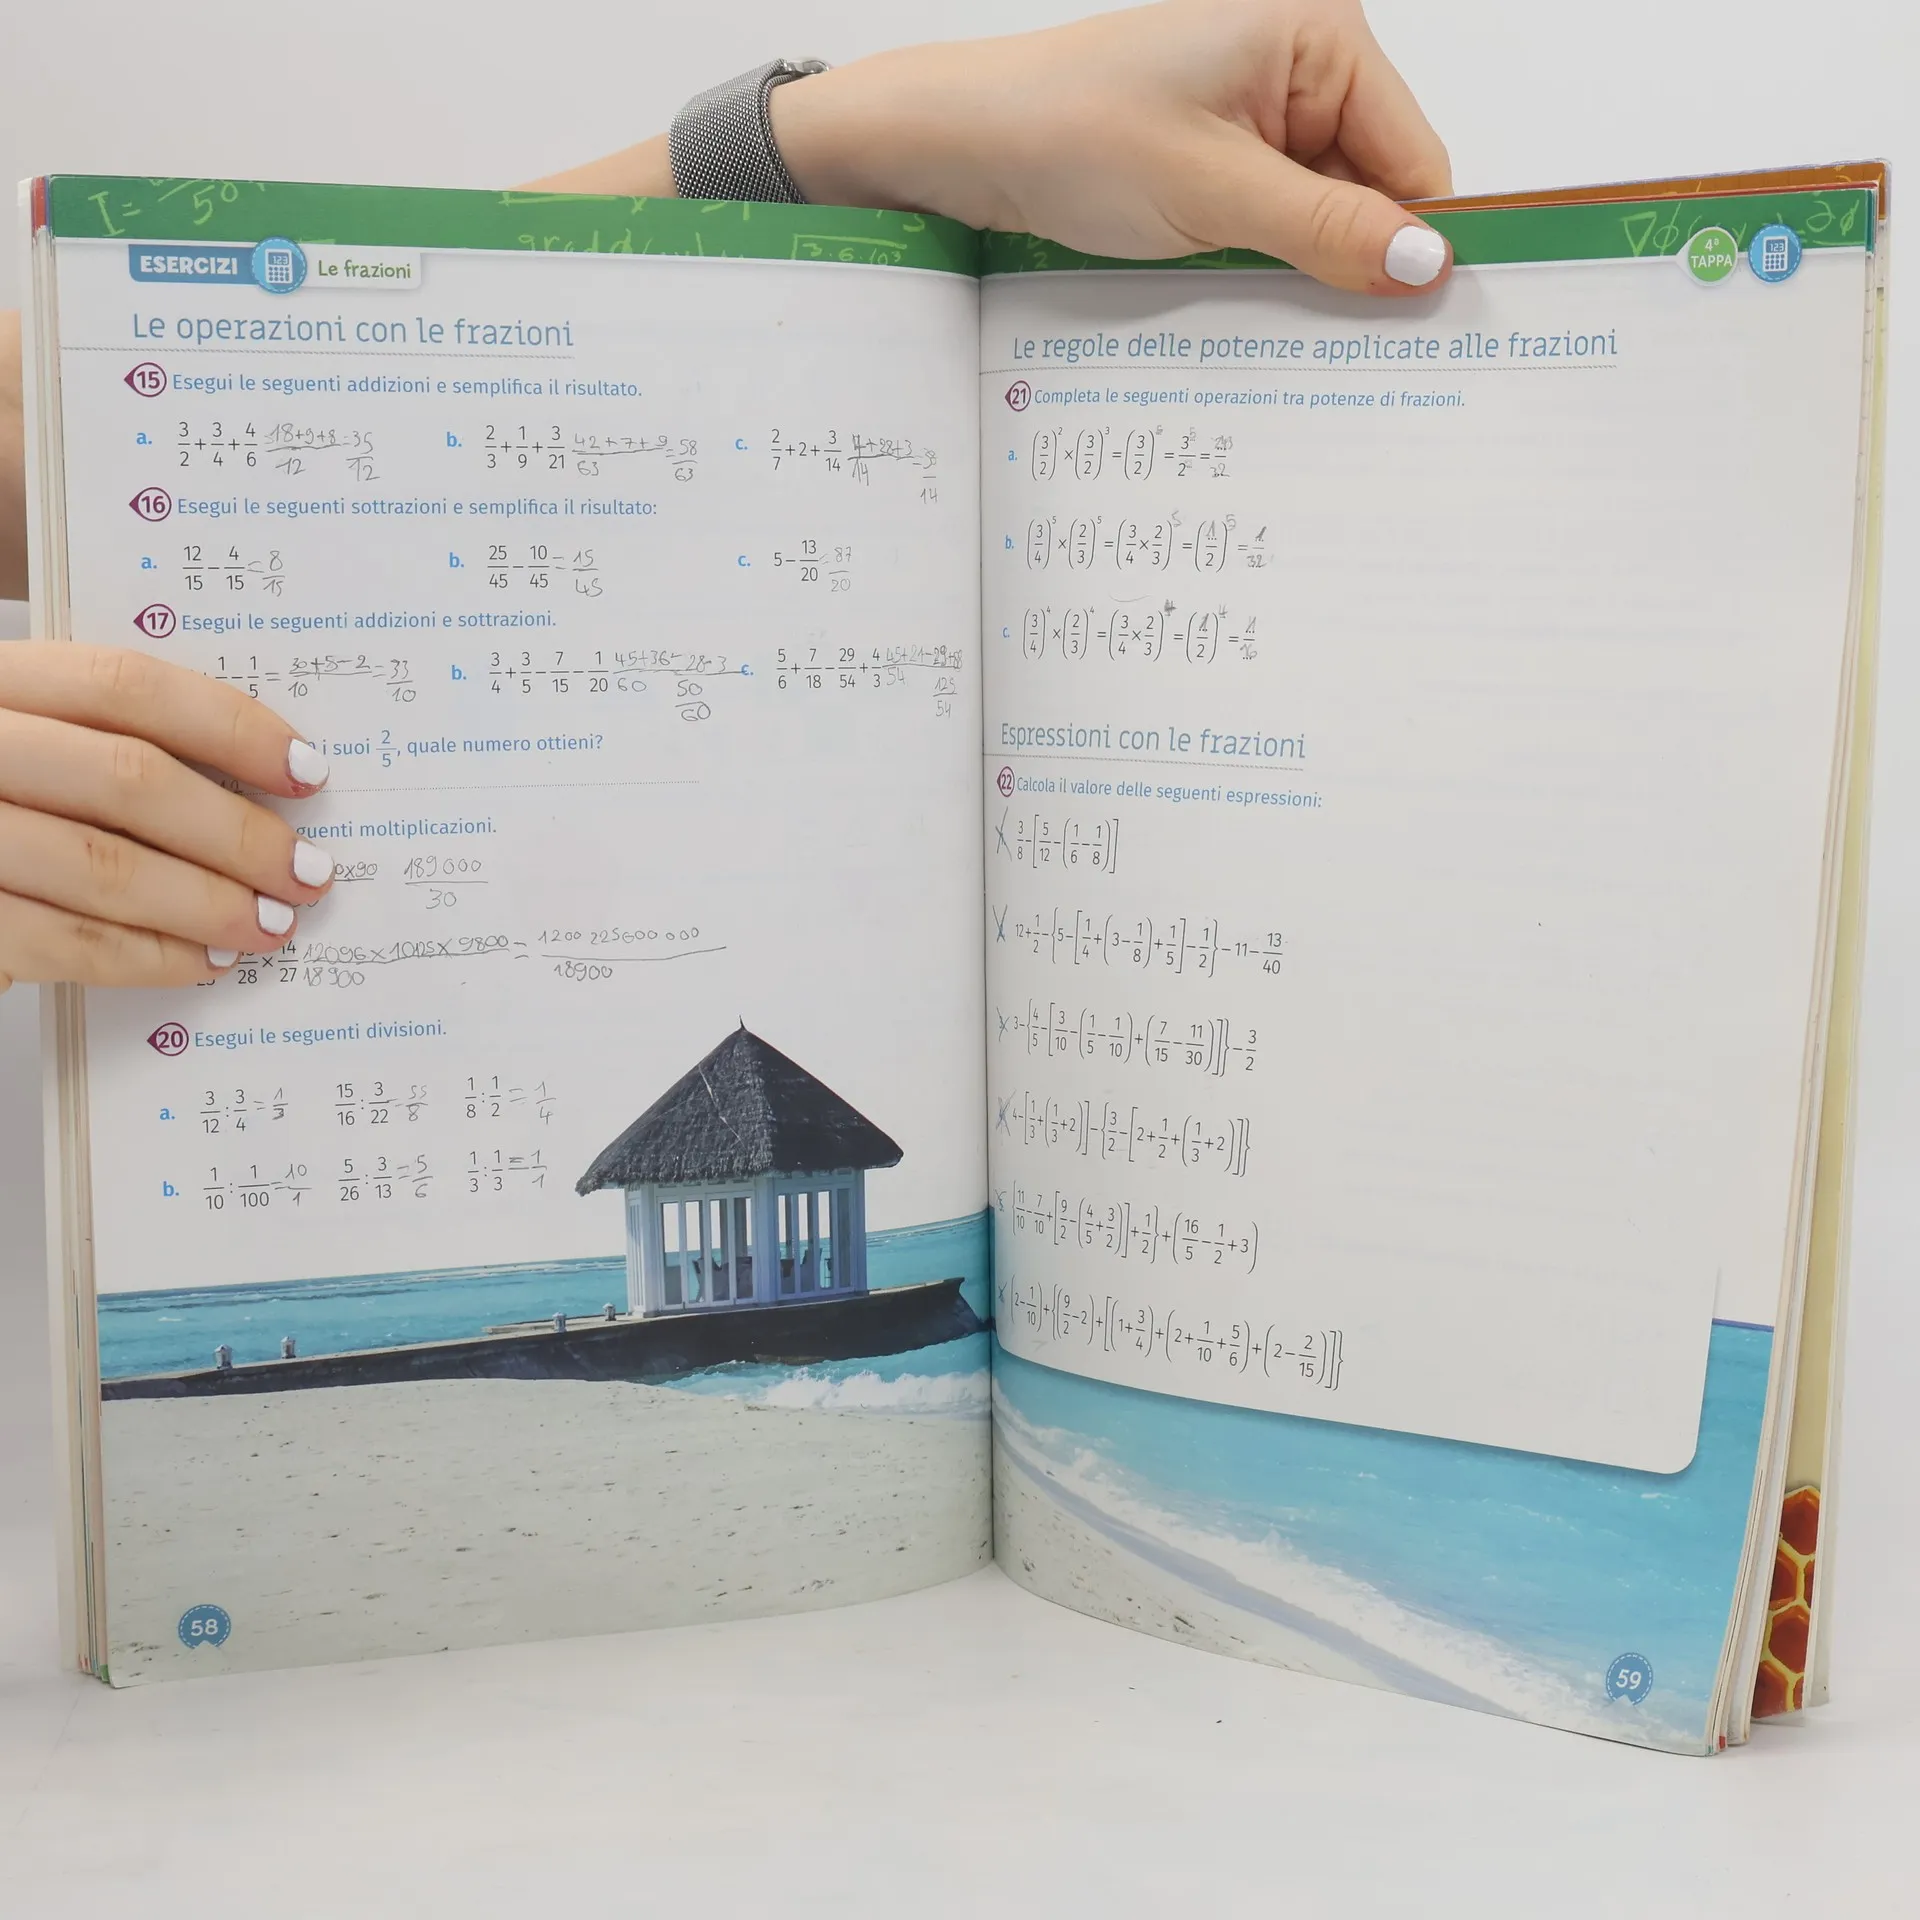 I = 50
ESERCIZI Le frazioni
Le operazioni con le frazioni
15 Esegui le seguenti addizioni e semplifica il risultato.
a. 3/2 + 3/4 + 4/6 18+9+8/12 = 35/12 b. 2/3 + 1/9 + 3/21 42+7+9/63 = 58/63 c. 2/7 + 2 + 3/14
16 Esegui le seguenti sottrazioni e semplifica il risultato:
a. 12/15 − 4/15 = 8/15 b. 25/45 − 10/45 = 15/45 c. 5 − 13/20 = 87/20
17 Esegui le seguenti addizioni e sottrazioni.
1/5 = 30+5−2/10 = 33/10 b. 3/4 + 3/5 − 7/15 − 1/20 45+36−28−3/60 50/60 c. 5/6 + 7/18 − 29/54 + 4/3 125/54
i suoi 2/5, quale numero ottieni?
moltiplicazioni.
189000/30
28 × 14/27 12096×1025×9800/18900 = 1200225600000/18900
20 Esegui le seguenti divisioni.
a. 3/12 : 3/4 = 1/3 15/16 : 3/22 = 55/8 1/8 : 1/2 = 1/4
b. 1/10 : 1/100 = 10/1 5/26 : 3/13 = 5/6 1/3 : 1/3 = 1/1
58
4ª
TAPPA
Le regole delle potenze applicate alle frazioni
21 Completa le seguenti operazioni tra potenze di frazioni.
a. (3/2)² × (3/2)³ = (3/2)⁵ = 3⁵/2⁵ = 243/32
b. (3/4)⁵ × (2/3)⁵ = (3/4 × 2/3)⁵ = (1/2)⁵ = 1/32
c. (3/4)⁴ × (2/3)⁴ = (3/4 × 2/3)⁴ = (1/2)⁴ = 1/16
Espressioni con le frazioni
22 Calcola il valore delle seguenti espressioni:
3/8 − [5/12 − (1/6 − 1/8)]
12 + 1/2 − {5 − [1/4 + (3 − 1/8) + 1/5] − 1/2} − 11 − 13/40
3 − {4/5 − [3/10 − (1/5 − 1/10) + (7/15 − 11/30)]} − 3/2
4 − [1/3 + (1/3 + 2)] − {3/2 − [2 + 1/2 + (1/3 + 2)]}
{11/10 − 7/10 + [9/2 − (4/5 + 3/2)] + 1/2} + (16/5 − 1/2 + 3)
(2 − 1/10) + {(9/2 − 2) + [(1 + 3/4) + (2 + 1/10 + 5/6) + (2 − 2/15)]}
59